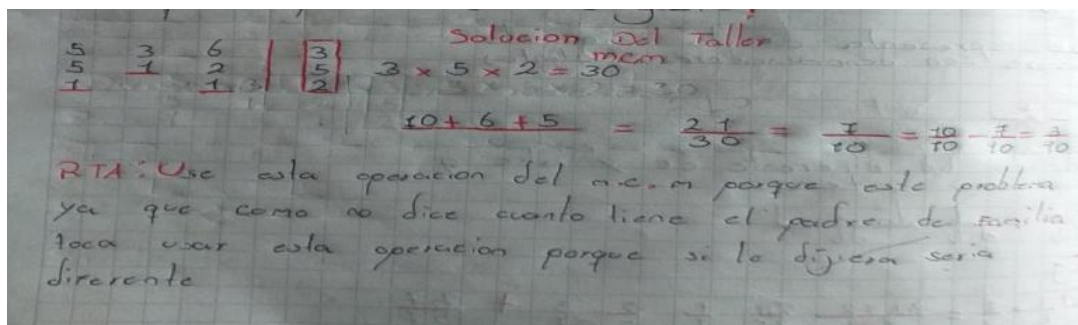 Solucion Del Taller
5 3 6 | 3
5 1 2 | 5
1 1 | 2
mcm
3 x 5 x 2 = 30
10 + 6 + 5 = 21/30 = 7/10 = 10/10 - 7/10 = 3/10
RTA: Use esta operacion del m.c.m porque este problema
ya que como no dice cuanto tiene el padre de Familia
toca usar esta operacion porque si lo dijera seria
diferente